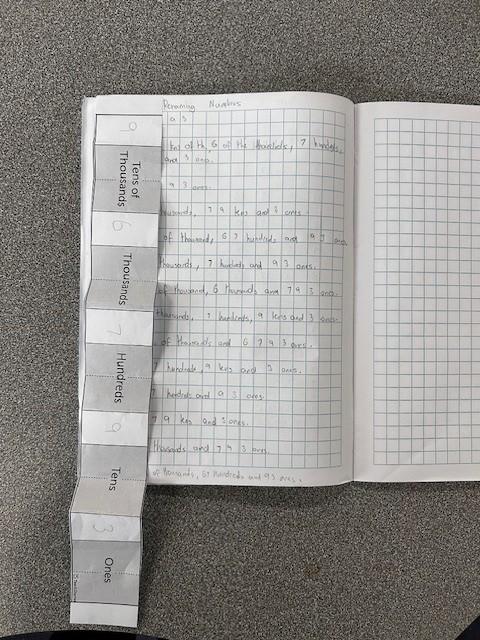 Renaming Numbers
9 3
tens of th, 6 of the thousands, 7 hundreds,
and 3 ones.
9 3 ones.
thousands, 7 9 tens and 3 ones
of thousand, 6 7 hundreds and 9 3 ones
thousands, 7 hundreds and 9 3 ones.
of thousand, 6 thousands and 7 9 3 ones.
thousands, 7 hundreds, 9 tens and 3 ones.
of thousands and 6 7 9 3 ones.
7 hundreds, 9 tens and 3 ones.
hundreds and 9 3 ones.
7 9 tens and 3 ones.
thousands and 7 9 3 ones.
of thousands, 67 hundreds and 93 ones.
9
Tens of
Thousands
6
Thousands
7
Hundreds
9
Tens
3
Ones